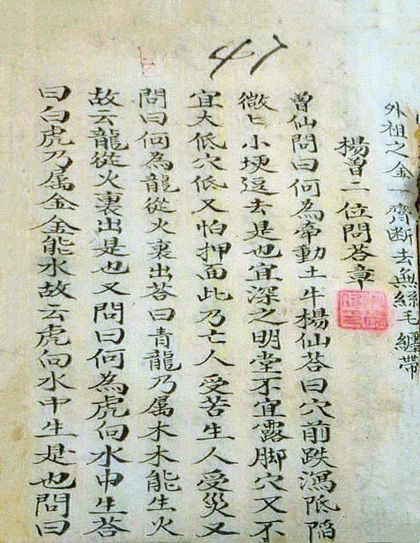 47
外祖之金一齊断去無絲毛纏帶
楊曾二位問荅章
曾仙問曰何為牽動土牛楊仙荅曰穴前跌馮低陷
微匕小埂逗去是也宜深之明堂不宜露脚穴又不
宜大低穴低又怕押面此乃亡人受苦生人受災又
問曰何為龍從火裏出荅曰青龍乃属木木能生火
故云龍從火裏出是也又問曰何為虎向水中生荅
曰白虎乃属金金能水故云虎向水中生是也問曰